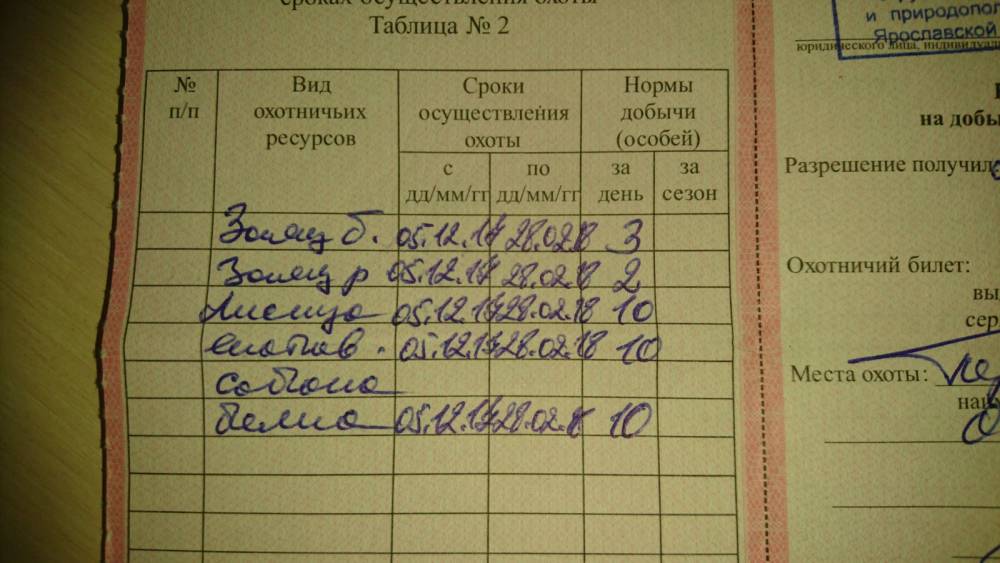 сроках осуществления охоты
Таблица № 2
№ п/п Вид охотничьих ресурсов Сроки осуществления охоты Нормы добычи (особей)
с дд/мм/гг по дд/мм/гг за день за сезон
Заяц б. 05.12.17 28.02.18 3
Заяц р 05.12.17 28.02.18 2
Лисица 05.12.17 28.02.18 10
05.12.17 28.02.18 10
собака
белка 05.12.17 28.02.18 10
и природопол
Ярославской
юридического лица, индивидуал
на добы
Разрешение получил
Охотничий билет:
вы
сер
Места охоты:
наим